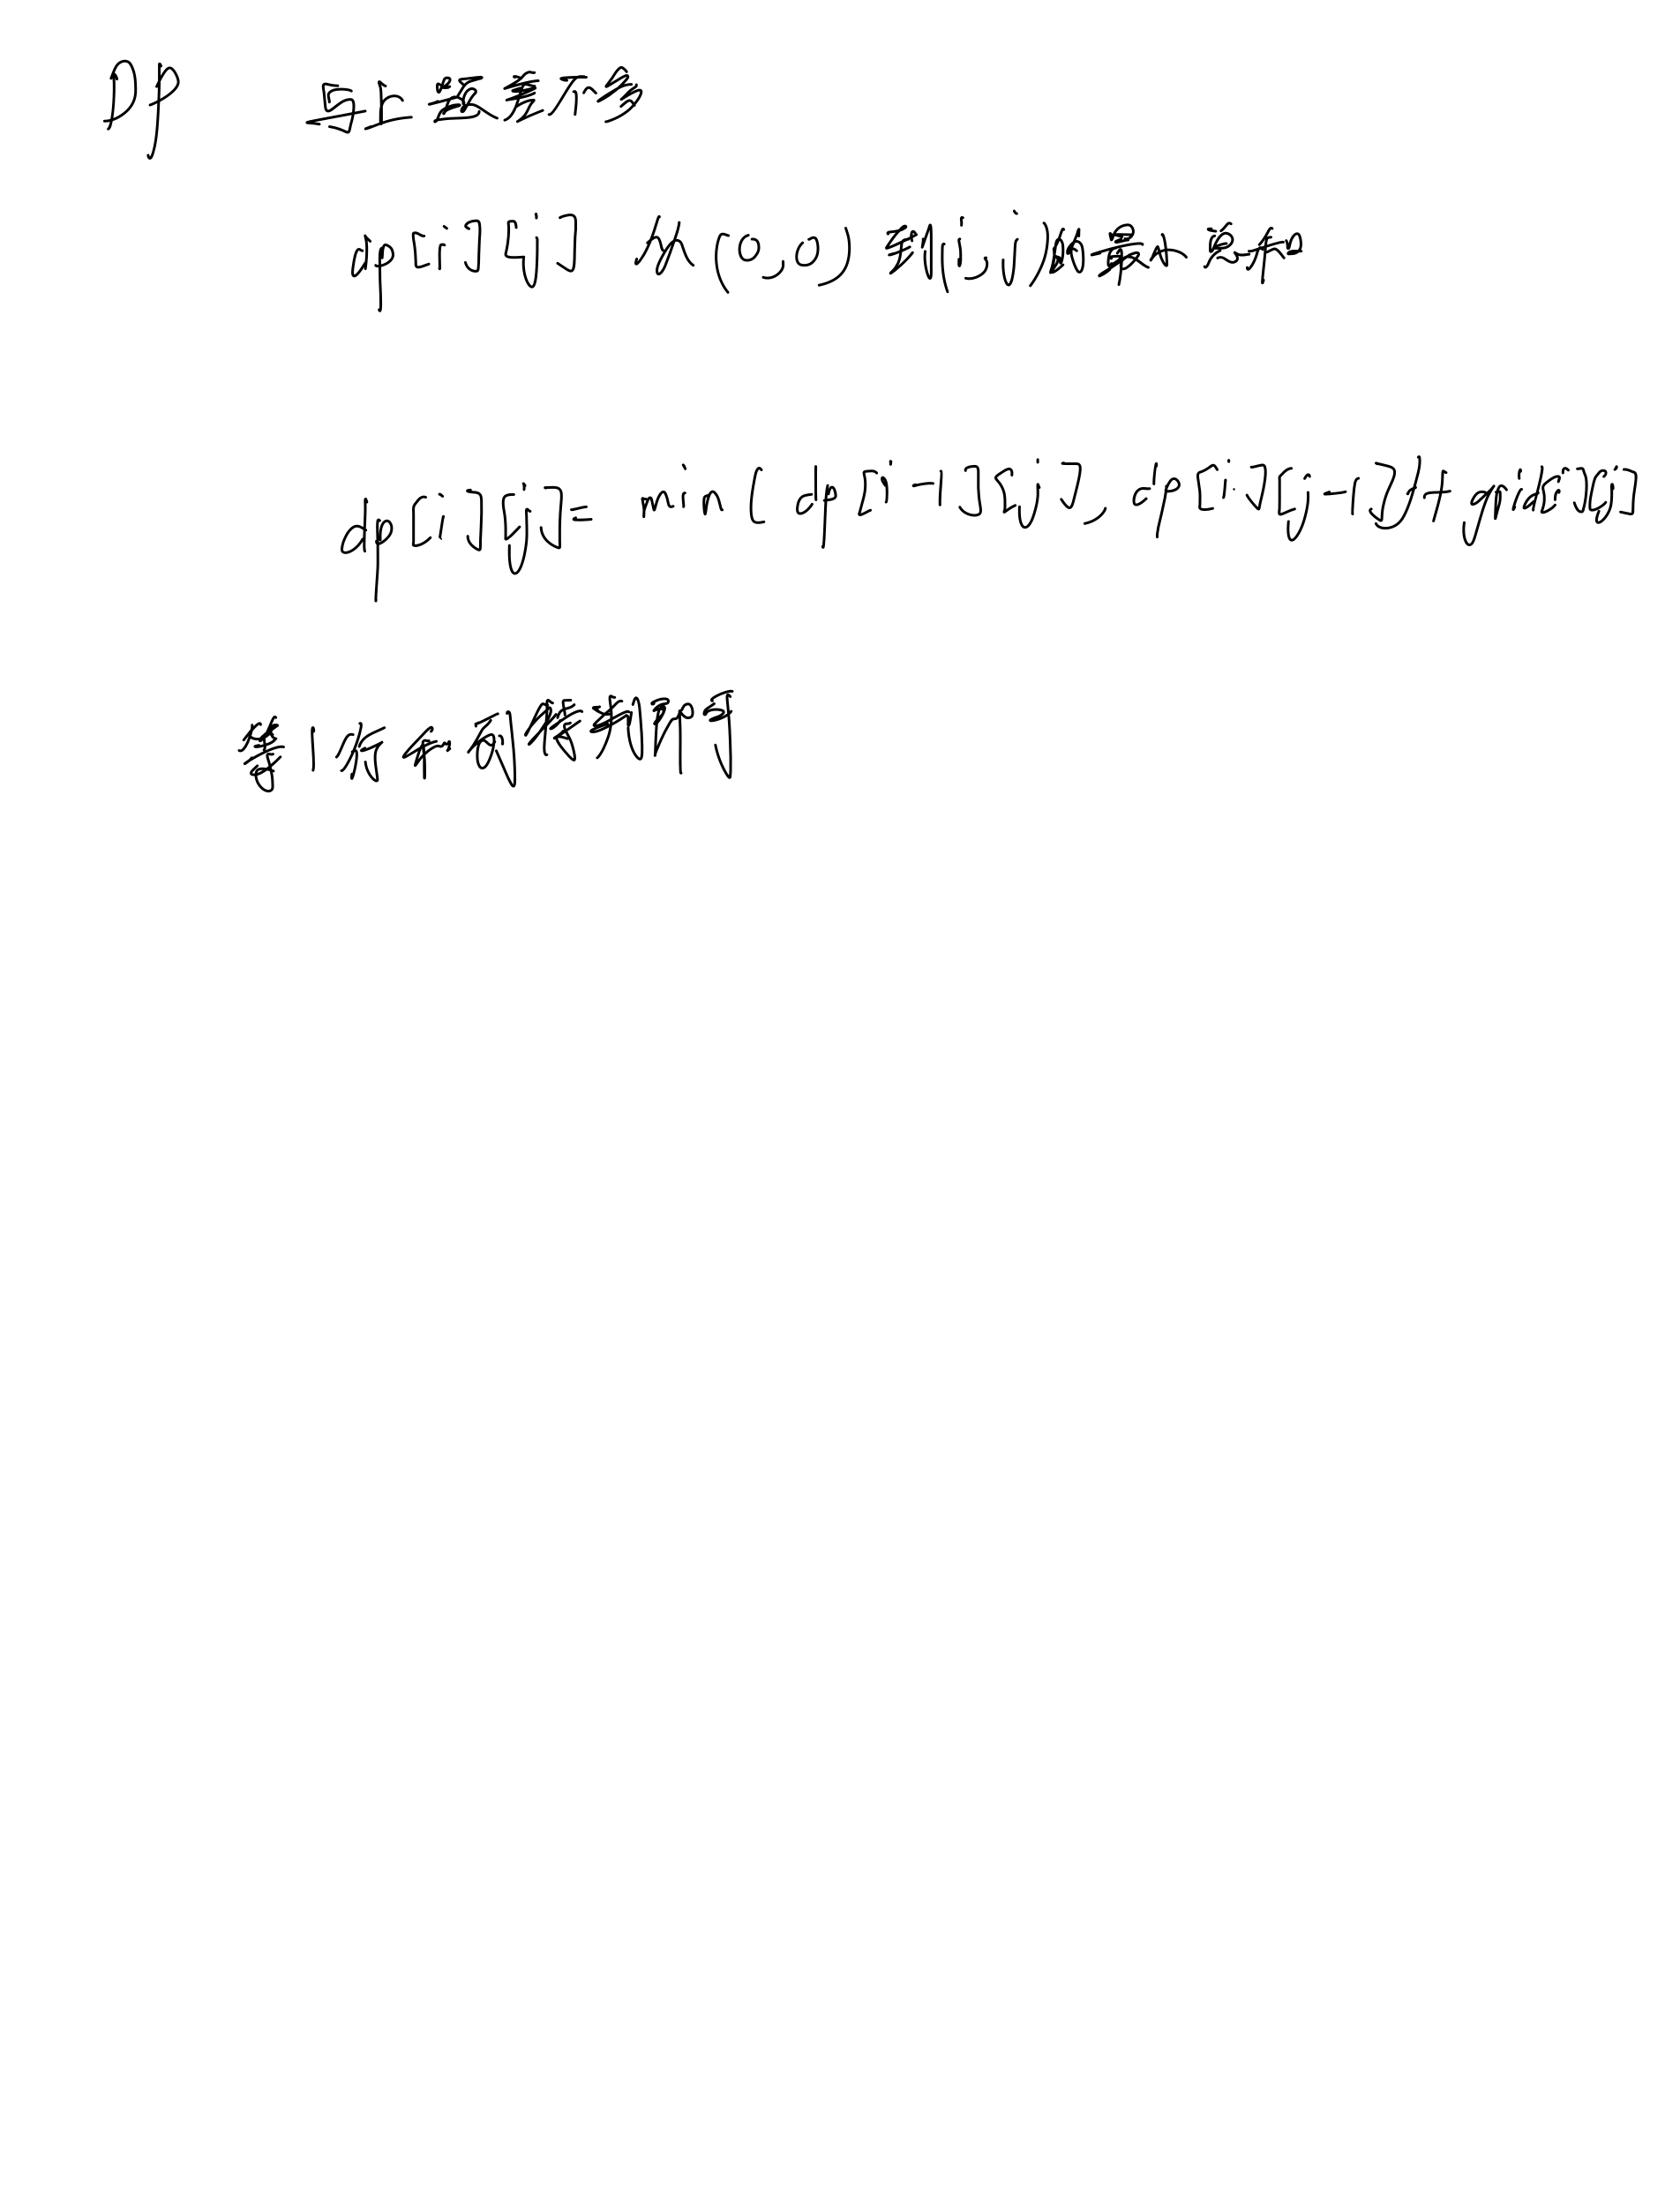 DP 与上题差不多
dp[i][j] 从(0,0)到(i,j)的最小总和
dp[i][j]=min(dp[i-1][j],dp[i][j-1])+grid[i][j]
第1行和列特判即可